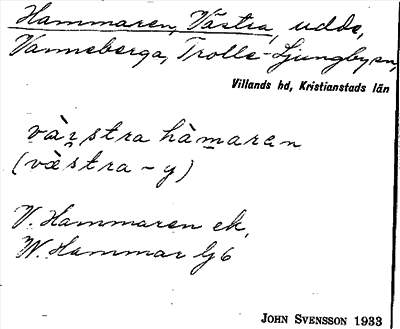 Hammaren, Västra, udde,
Vanneberga, Trolle-Ljungby sn,
Villands hd, Kristianstads län
vàn̥stra hàmaran
(væ̀stra - y)
V. Hammaren ek,
W. Hammar Gj 6
JOHN SVENSSON 1933